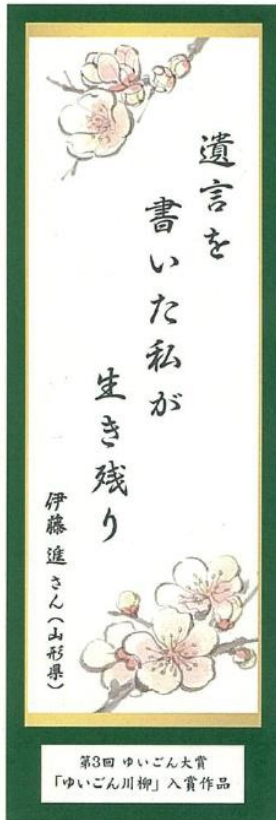 遺言を
書いた私が
生き残り
伊藤 進さん(山形県)
第3回 ゆいごん大賞
「ゆいごん川柳」入賞作品